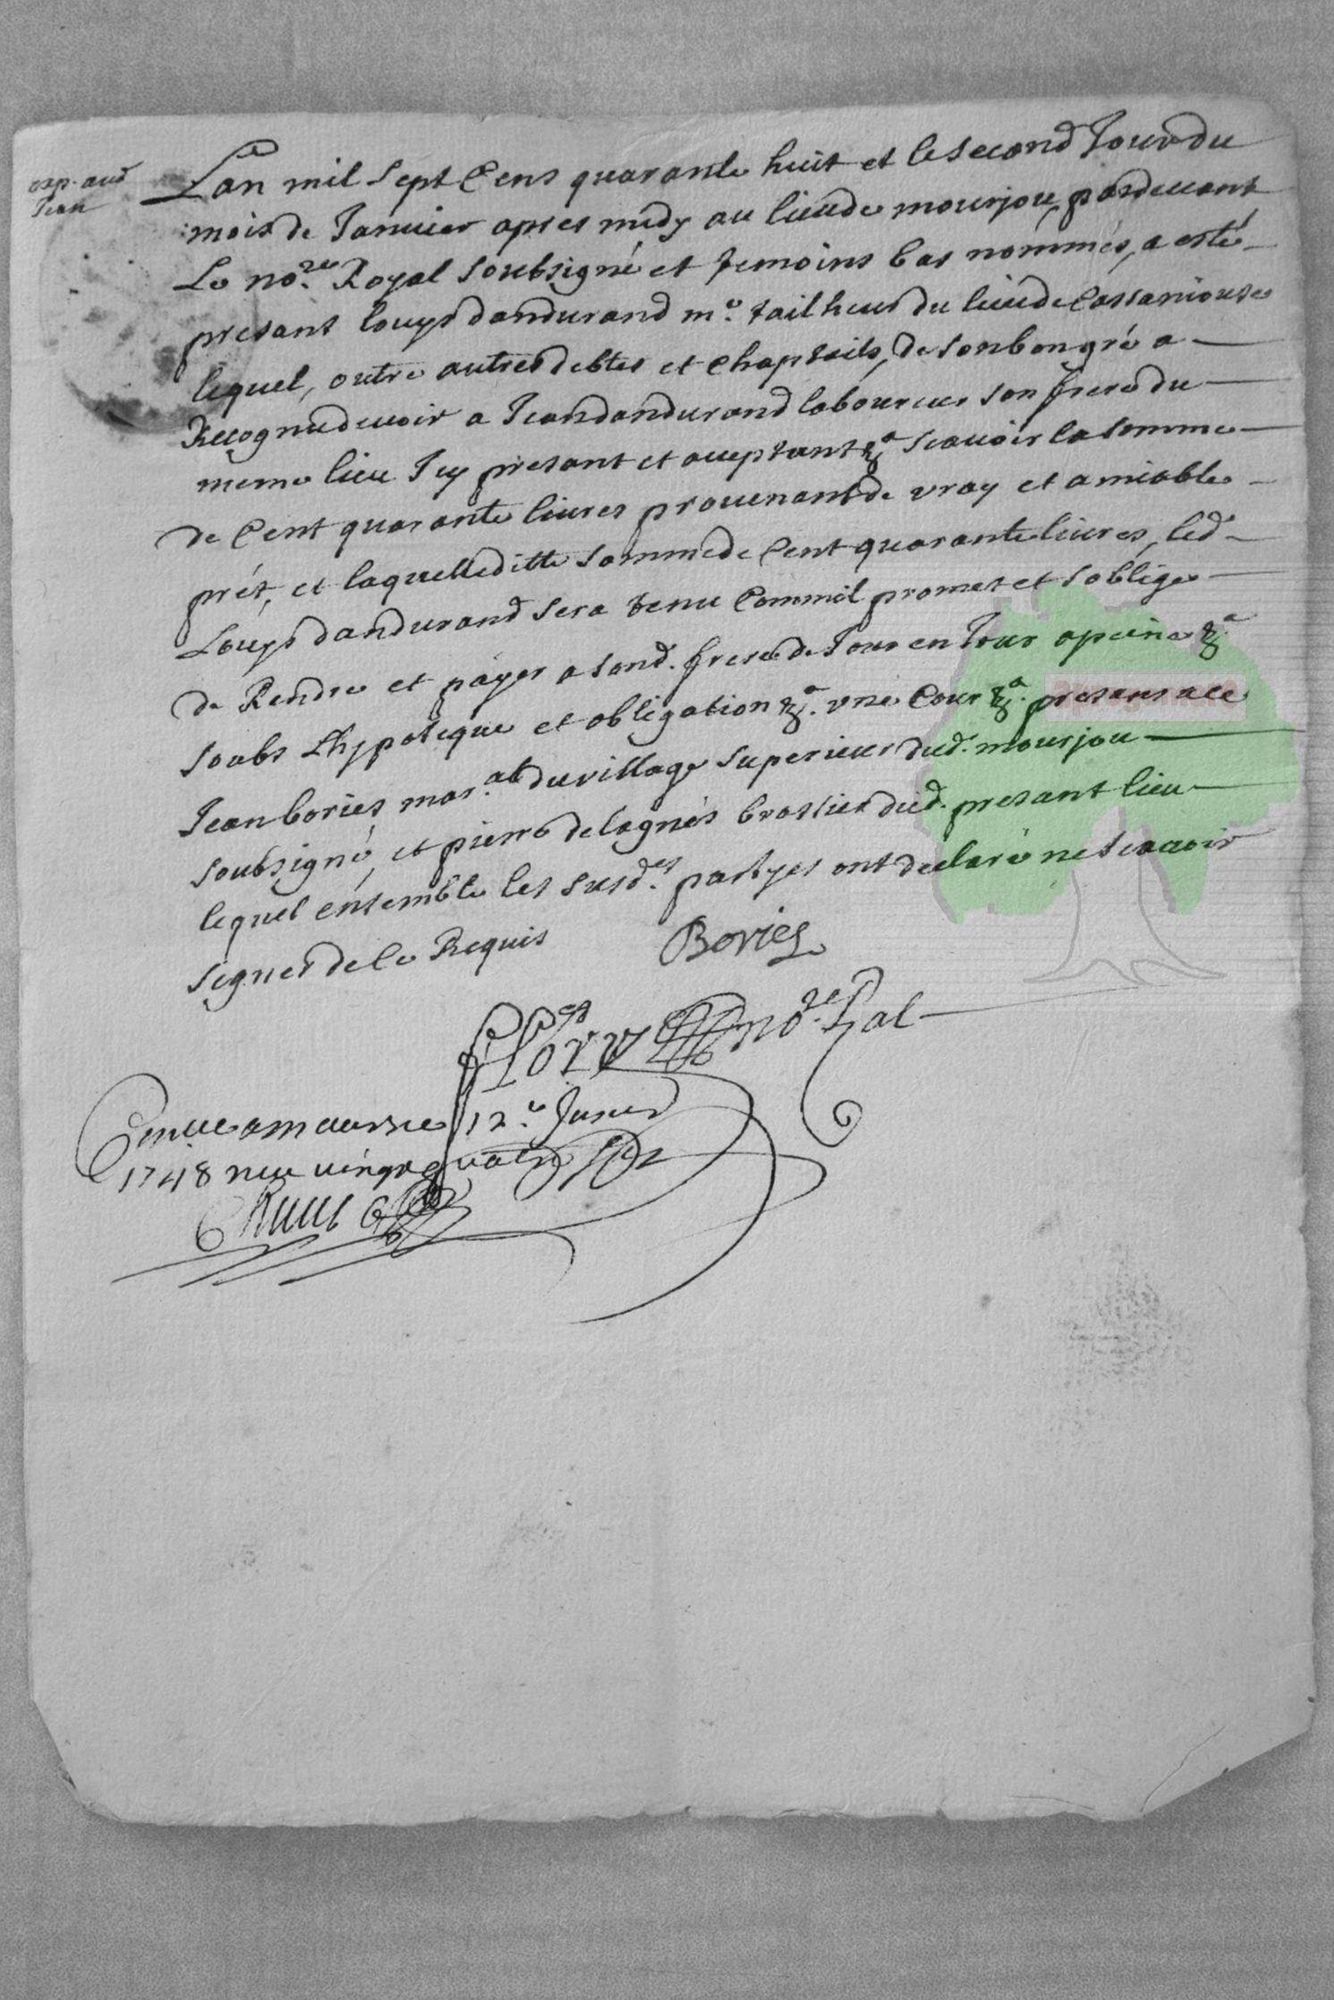 exp. aud
Jean
Lan mil sept Cens quarante huit et le second Jour du
mois de Januier apres midy au lieu de mourjou, pardeuant
Le no.re Royal soubsigné et temoins bas nommés, a esté
presant louys dandurand m.e tailheur du lieu de Cassaniouse
lequel, outre autres debtes et Chaptails, de son bon gré a
Recognu deuoir a Jean dandurand laboureur son frere du
meme lieu Icy presant et acceptant &a scauoir la somme
de Cent quarante liures prouenant de vray et amiable
prét, et laquelle ditte somme de Cent quarante liures, led.
Louys dandurand sera tenu Comm'il promet et soblige
de Rendre et payer a sond. frere de Jour en Jour a peine &a
soubs Lhypoteque et obligation &a. vne Cour &a. presans a ce
Jean bories mar.at du village superieur dud. mourjou
soubsigné, et pierre delagnés brassier dud. presant lieu
lequel ensemble les susd.es partyes ont declaré ne scauoir
signer de ce Requis
Bories
no.re Ral
12.e
1748